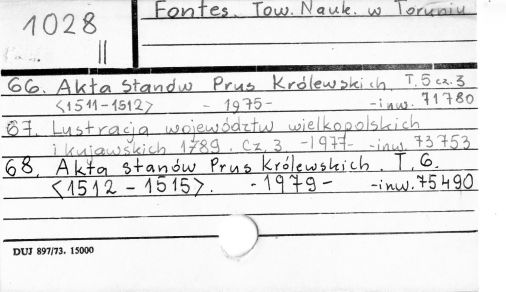 1028
II
Fontes. Tow. Nauk. w Toruniu
66. Akta Stanów Prus Królewskich. T. 5 cz. 3
<1511-1512> - 1975 - - inw. 71780
67. Lustracja województw wielkopolskich
i kujawskich 1789. Cz. 3. - 1977 - - inw. 73753
68. Akta Stanów Prus Królewskich. T. 6.
<1512 - 1515>. - 1979 - - inw. 75490
DUJ 897/73. 15000